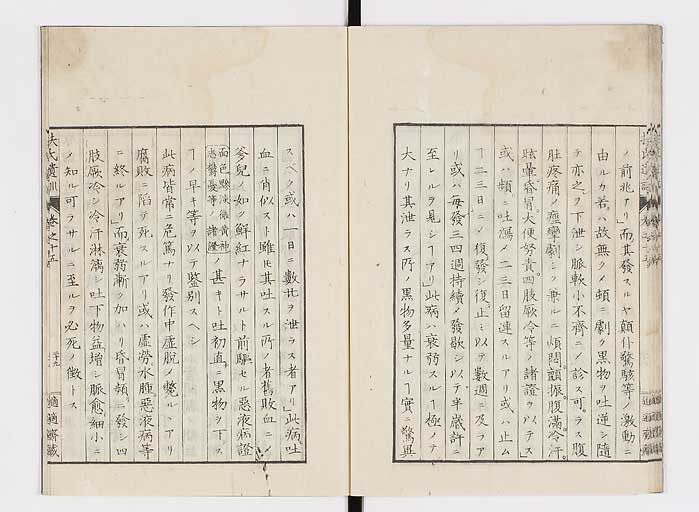 ノ前兆アリ」而其發スルヤ顛仆發駭等ノ激動ニ
由ルカ若ハ故無クノ頻ニ劇ク黒物ヲ吐逆シ隨
テ亦之ヲ下泄シ脈軟小不齊ニノ診ス可ラス腹
肚疼痛ノ痙攣劇シク兼ルニ煩悶顫振腹滿冷汗
眩暈昏冒大便努責四肢厥冷等ノ諸證ヲ以テス」
或ハ頻ニ吐瀉ノ二三日留連スルアリ或ハ止ム
ヿ二三日ニノ復發シ復止ミ以テ數週ニ及ラア
リ或ハ毎發三四週持續ノ發歇シ以テ半歳許ニ
至レルヲ見シヿアリ」此病ハ衰弱スルヿ極ノテ
大ナリ其泄ラス所ノ黒物多量ナルヿ實ニ驚異
スヘク或ハ一日ニ數廿ヲ泄ラス者アリ」此病吐
血ニ肖似スト雖モ其吐スル所ノ者舊敗血ニノ
爹兒ノ如ク鮮紅ナラサルト前驅セル惡液病證
面色黲淡微黄神
志鬱憂等ノ諸證ノ甚キト吐初直ニ黒物ヲ下ス
ヿノ早キ等ヲ以テ鑒別スヘシ
此病皆常ニ危篤ナリ發作中虚脱ノ斃ルヽアリ
腐敗ニ陷テ死スルアリ或ハ虚勞水腫惡液病等
ニ終ルアリ」而衰弱漸ク加ハリ昏冒頻リニ發シ四
肢厥冷シ冷汗淋漓シ吐下物益増シ脈愈細小ニ
ノ知ル可ラサルニ至ルヲ必死ノ徴トス
扶氏遺訓 卷之十五
廿九
適適齋藏